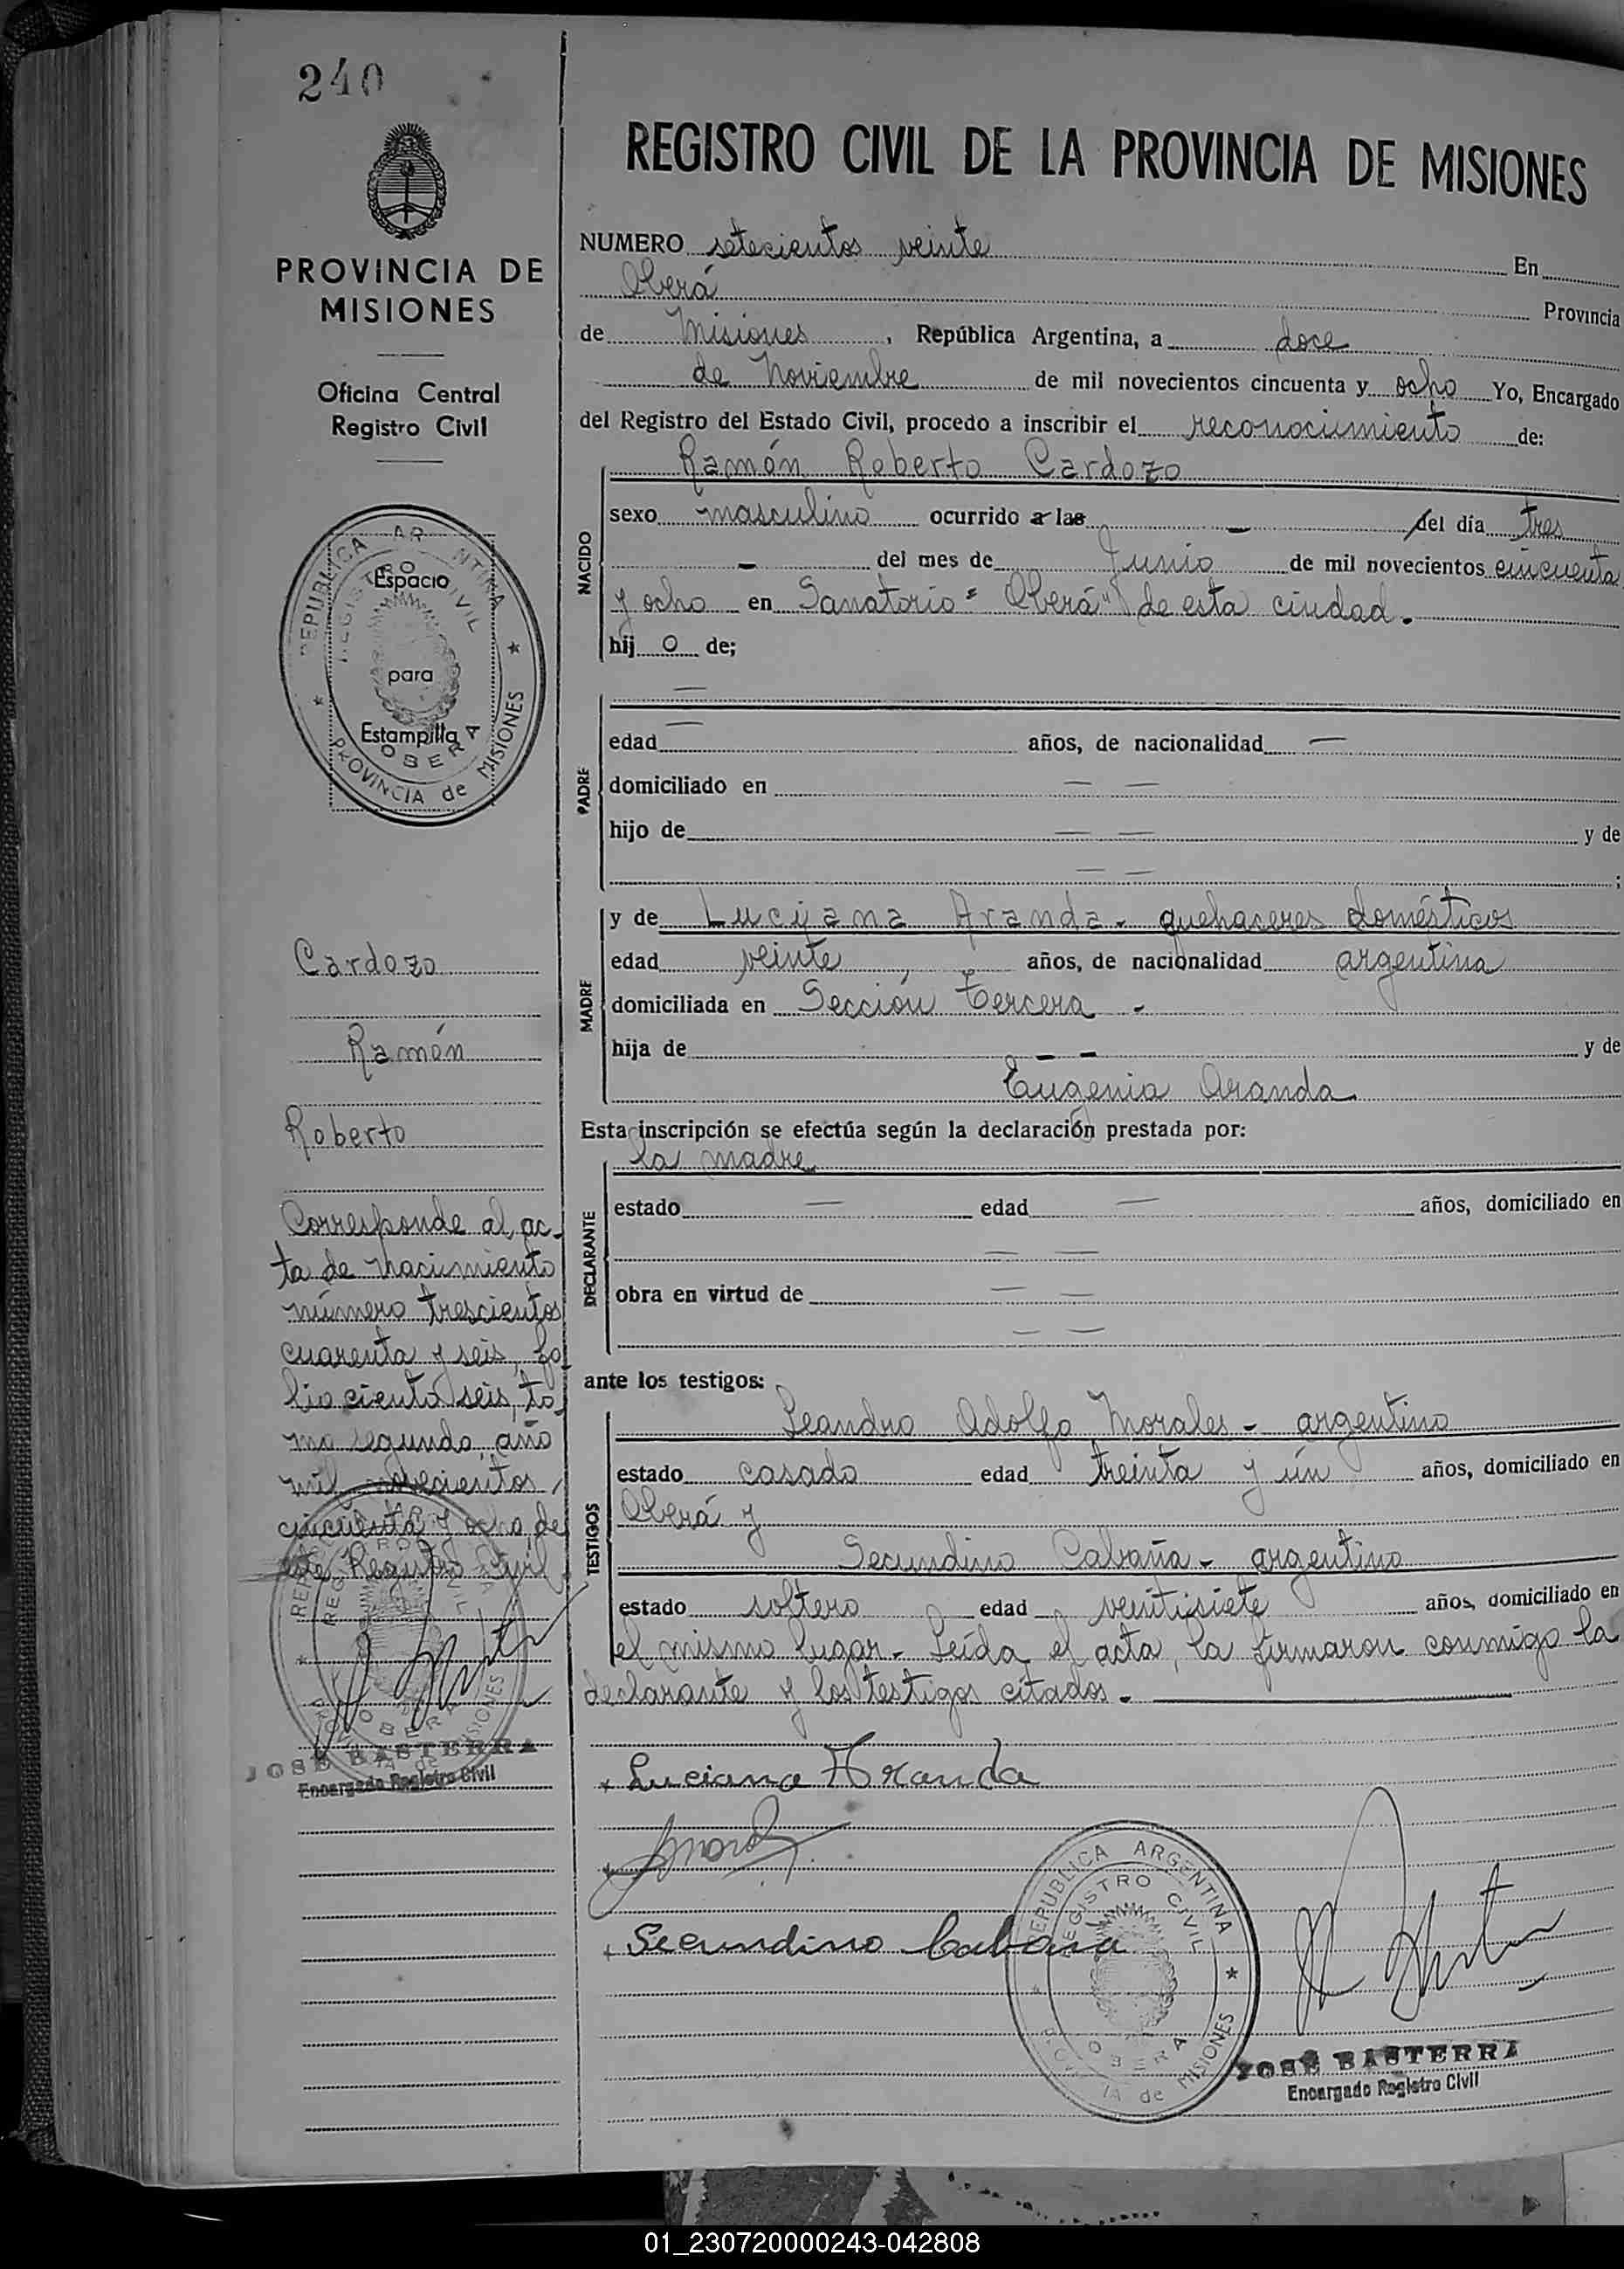 240
PROVINCIA DE
MISIONES
Oficina Central
Registro Civil
REPUBLICA ARGENTINA
REGISTRO CIVIL
Espacio
para
Estampilla
OBERA
PROVINCIA de MISIONES
Cardozo
Ramón
Roberto
Corresponde al ac-
ta de nacimiento
número trescientos
cuarenta y seis, fo-
lio ciento seis, to-
mo segundo, año
mil novecientos
cincuenta y ocho, de
este Registro Civil
JOSÉ BASTERRA
Encargado Registro Civil
REGISTRO CIVIL DE LA PROVINCIA DE MISIONES
NUMERO setecientos veinte En
Oberá Provincia
de Misiones, República Argentina, a doce
de Noviembre de mil novecientos cincuenta y ocho Yo, Encargado
del Registro del Estado Civil, procedo a inscribir el reconocimiento de:
Ramón Roberto Cardozo
NACIDO
sexo masculino ocurrido a las - del día tres
- del mes de Junio de mil novecientos cincuenta
y ocho en Sanatorio "Oberá" de esta ciudad.
hij o de;
—
PADRE
edad — años, de nacionalidad —
domiciliado en — —
hijo de — — y de
— — ;
MADRE
y de Luciana Aranda - quehaceres domésticos
edad veinte años, de nacionalidad argentina
domiciliada en Sección Tercera -
hija de - - y de
Eugenia Aranda
Esta inscripción se efectúa según la declaración prestada por:
la madre
DECLARANTE
estado — edad — años, domiciliado en
— —
obra en virtud de — —
— —
ante los testigos:
TESTIGOS
Leandro Adolfo Morales - argentino
estado casado edad treinta y ún años, domiciliado en
Oberá y
Secundino Cabaña - argentino
estado soltero edad veintisiete años, domiciliado en
el mismo lugar - Leída el acta, la firmaron conmigo la
declarante y los testigos citados.
Luciana Aranda
Secundino Cabaña
REPUBLICA ARGENTINA
REGISTRO CIVIL
OBERA
de MISIONES
JOSÉ BASTERRA
Encargado Registro Civil
01_230720000243-042808